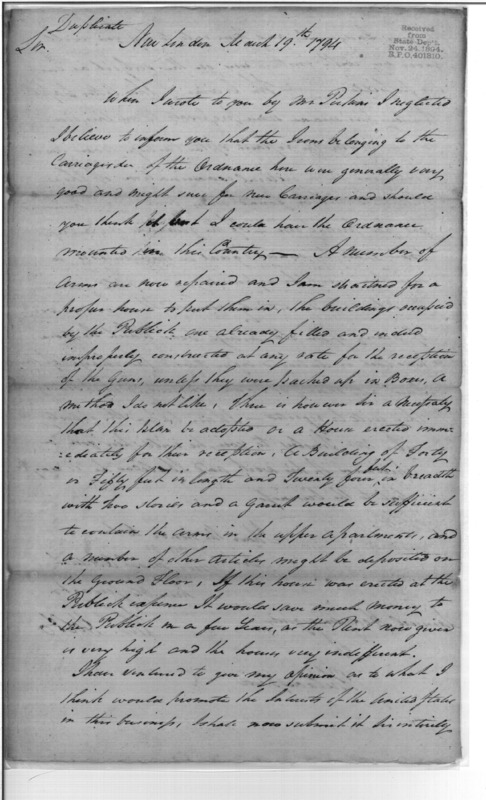 Duplicate
Sir, New London March 19.th 1794
Received
from
State Dep't,
Nov. 24, 1894.
R.P.O. 401810.
When I wrote to you by Mr Perkins I neglected
I believe to inform you that the Irons belonging to the
Carriages &c of the Ordnance here were generally very
good and might serve for new Carriages and should
you think it best I could have the Ordnance
mounted in this Country — A number of
arms are now repaired and I am shortned for a
proper house to put them in, the buildings occupied
by the Publick are already filled and indeed
improperly constructed at any rate for the reception
of the Guns, unless they were packed up in Boxes, a
method I do not like, there is however Sir a necessity
that this plan be adopted or a House erected imm-
=ediately for their reception, A Building of Forty
or Fifty feet in length and Twenty four feet in breadth
with two stories and a Garret would be sufficient
to contain the arms in the upper apartments, and
a number of other articles might be deposited on
the Ground Floor, If this house was erected at the
Publick expence It would save much money to
the Publick in a few Years, as the Rent now given
is very high and the houses very indifferent.
I have ventured to give my opinion as to what I
think would promote the Interests of the United States
in this business, & shall now submit it Sir entirely